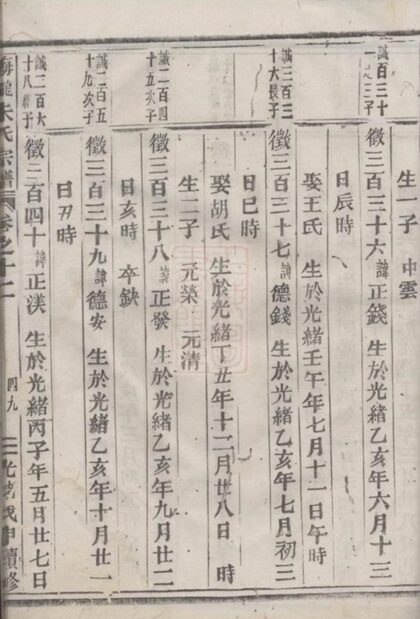 生一子 中雲
誠百三十
徵三百三十六 諱正錢 生於光緒乙亥年六月十三
日辰時
娶王氏 生於光緒壬午年七月十一日午時
誠三百三
十六長子
徵三百三十七 諱德錢 生於光緒乙亥年七月初三
日巳時
娶胡氏 生於光緒丁丑年十二月廿八日 時
生二子 元榮 元清
誠二百四
十五次子
徵三百三十八 諱正發 生於光緒乙亥年九月廿二
日亥時 卒缺
誠二百五
十九次子
徵三百三十九 諱德安 生於光緒乙亥年十月廿一
日丑時
誠三百六
十八子
徵三百四十 諱正渼 生於光緒丙子年五月廿七日
朱氏宗譜 卷之十二 四九 光緒戊申續修